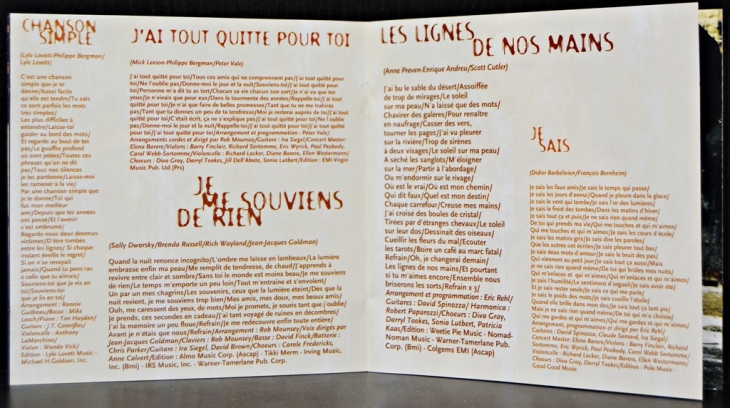 CHANSON
SIMPLE
(Lyle Lovett-Philippe Bergman/
Lyle Lovett)
C'est une chanson
simple que je te
donne/Aussi facile
qu'elle est tendre/Tu sais
ce sont parfois les mots
très simples/
Les plus difficiles à
entendre/Laisse-toi
guider au bord des mots/
Et regarde au bout de tes
pas/Le gouffre profond
où sont jetées/Toutes ces
phrases qu'on ne dit
pas/Tous nos silences
je les pardonne/Laisse-moi
les ramener à la vie/
Par une chanson simple que
je te donne/Toi qui
fus mon meilleur
ami/Depuis que les années
ont passé/Et l'avenir
s'est ombragé/
Regarde nous deux devenus
victimes/D'être tombés
entre les lignes/Si chaque
instant éveille le regret/
Si on n'se revoyait
jamais/Quand tu pens'ras
à celle que tu aimais/
Souviens-toi que je vis en
toi/Souviens-toi
que je lis en toi/
Arrangement : Ronnie
Guilbeau/Basse : Mike
Leach/Piano : Tim Hayden/
Guitare : J.T. Corenflos/
Violoncelle : Anthony
LaMarchina/
Violon : Wanda Vick/
Edition : Lyle Lovett Music -
Michael H.Goldsen, Inc.
J'AI TOUT QUITTE POUR TOI
(Mick Leeson-Philippe Bergman/Peter Vale)
J'ai tout quitté pour toi/Tous ces amis qui ne comprennent pas/J'ai tout quitté pour
toi/Ne l'oublie pas/Donne-moi le jour et la nuit/Souviens-toi/J'ai tout quitté pour
toi/Personne m'a dit tu as tort/Chacun sa vie chacun son sort/Je n'ai vu que tes
yeux/Je n'vivais que pour eux/Dans la tourmente des années/Rappelle-toi/J'ai tout
quitté pour toi/Je n'ai que faire de belles promesses/Tant que tu ne me trahiras
pas/Tant que tu donnes un peu de ta tendresse/Moi je resterai auprès de toi/J'ai tout
quitté pour toi/C'était écrit, ça ne s'explique pas/J'ai tout quitté pour toi/Ne l'oublie
pas/Donne-moi le jour et la nuit/Rappelle-toi/J'ai tout quitté pour toi/J'ai tout quitté
pour toi/J'ai tout quitté pour toi/Arrangement et programmation : Peter Vale/
Arrangements cordes et dirigé par Rob Mounsey/Guitare : Ira Siegel/Concert Master:
Elena Barere/Violons : Barry Finclair, Richard Sortomme, Eric Wyrick, Paul Peabody,
Carol Webb-Sortomme/Violoncelle : Richard Locker, Diane Barere, Ellen Westermann/
Choeurs : Diva Gray, Darryl Tookes, Jill Dell'Abate, Sonia Lutbert/Edition : EMI-Virgin
Music Pub. Ltd (Prs)
JE
ME SOUVIENS
DE RIEN
(Sally Dworsky/Brenda Russell/Rich Wayland/Jean-Jacques Goldman)
Quand la nuit renonce/L'ombre me laisse en lambeaux/La lumière
embrasse enfin ma peau/Me remplit de tendresse, de chaud/J'apprends à
revivre entre clair et sombre/Sans toi le monde est moins beau/Je me souviens
de rien/Le temps m'emporte un peu loin/Tout m'entraîne et s'envolent/
Un par un mes chagrins/Les souvenirs, ceux que la lumière éteint/Dès que la
nuit revient, je me souviens trop bien/Mes amis, mes doux, mes beaux amis/
Ouh, me caressent des yeux, de mots/Moi je promets, je souris tant que j'oublie/
Je prends, ces secondes en cadeau/J'ai tant voyagé de ruines en décombres/
J'ai la mémoire un peu floue/Refrain/Je me redécouvre enfin toute entière/
Avant je n'était que nous/Refrain/Arrangement : Rob Mounsey/Voix dirigés par
Jean-Jacques Goldman/Claviers : Rob Mounsey/Basse : David Finck/Batterie :
Chris Parker/Guitare : Ira Siegel, David Brown/Choeurs : Carole Fredericks,
Anne Calvert/Edition : Almo Music Corp. (Ascap) - Tikki Merm - Irving Music,
Inc. (Bmi) - IRS Music, Inc. - Warner-Tamerlane Pub. Corp.
LES LIGNES
DE NOS MAINS
(Anne Preven-Enrique Andreu/Scott Cutler)
J'ai bu le sable du désert/Assoiffée
de trop de mirages/Le soleil
sur ma peau/N'a laissé que des mots/
Chavirer des galères/Pour renaître
en naufrage/Casser des vers,
tourner les pages/J'ai vu pleurer
sur la rivière/Trop de sirènes
à deux visages/Le soleil sur ma peau/
A séché les sanglots/M'éloigner
sur la mer/Partir à l'abordage/
Ou m'endormir sur le rivage/
Où est le vrai/Où est mon chemin/
Qui dit faux/Quel est mon destin/
Chaque carrefour/Creuse mes mains/
J'ai croisé des boules de cristal/
Tirées par d'étranges chevaux/Le soleil
sur leur dos/Dessinait des oiseaux/
Cueillir les fleurs du mal/Ecouter
les tarots/Boire un café au marc fatal/
Refrain/Oh, je changerai demain/
Les lignes de nos mains/Et pourtant
si tu m'aimes encore/Ensemble nous
briserons les sorts/Refrain x 3/
Arrangement et programmation : Eric Rehl/
Guitares : David Spinozza/ Harmonica :
Robert Paparozzi/Choeurs : Diva Gray,
Darryl Tookes, Sonia Lutbert, Patricia
Kaas/Edition : Weetie Pie Music - Nomad-
Noman Music - Warner-Tamerlane Pub.
Corp. (Bmi) - Colgems EMI (Ascap)
JE
SAIS
(Didier Barbelivien/François Bernheim)
Je sais les faux amis/Je sais le temps qui passe/
Je sais les jours d'ennui/Quand je pleure dans la glace/
Je sais le vent qui tombe/Je sais l'or des lumières/
Je sais le froid des tombes/Dans les matins d'hiver/
Je sais tout ça et puis/Je ne sais rien quand même/
De toi qui prends ma vie/Qui me touches et qui m'aimes/
Qui me touches et qui m'aimes/Je sais les cours d'école/
Je sais les matins gris/Je sais dire les paroles/
Que les autres ont écrites/Je sais pleurer tout bas/
Je sais deux mots d'amour/Je sais le bruit des pas/
Qui viennent au petit jour/Je sais tout ça/Mais puis/
Je ne sais rien quand même/De toi qui brûles mes nuits/
Qui m'enlaces et qui m'aimes/Qui m'enlaces et qui m'aimes/
Je sais l'humilité/Le sentiment d'orgueil/Je sais avoir été/
Je sais rester seule/Je sais ce qui me parle/
Je sais le poids des mots/Je sais cueillir l'étoile/
Quand elle brille dans mon dos/Je sais tout ça tant pis/
Mais je ne sais rien quand même/De toi qui m'a choisie/
Qui me gardes et qui m'aimes/Qui me gardes et qui m'aimes/
Arrangement, programmation et dirigé par Eric Rehl/
Guitares : David Spinozza, Claude Samard, Ira Siegel/
Concert Master: Elena Barere/Violons : Barry Finclair, Richard
Sortomme, Eric Wyrick, Paul Peabody, Carol Webb-Sortomme/
Violoncelle : Richard Locker, Diane Barere, Ellen Westermann/
Choeurs : Diva Gray, Darryl Tookes/Edition : Pole Music -
Good Good Music